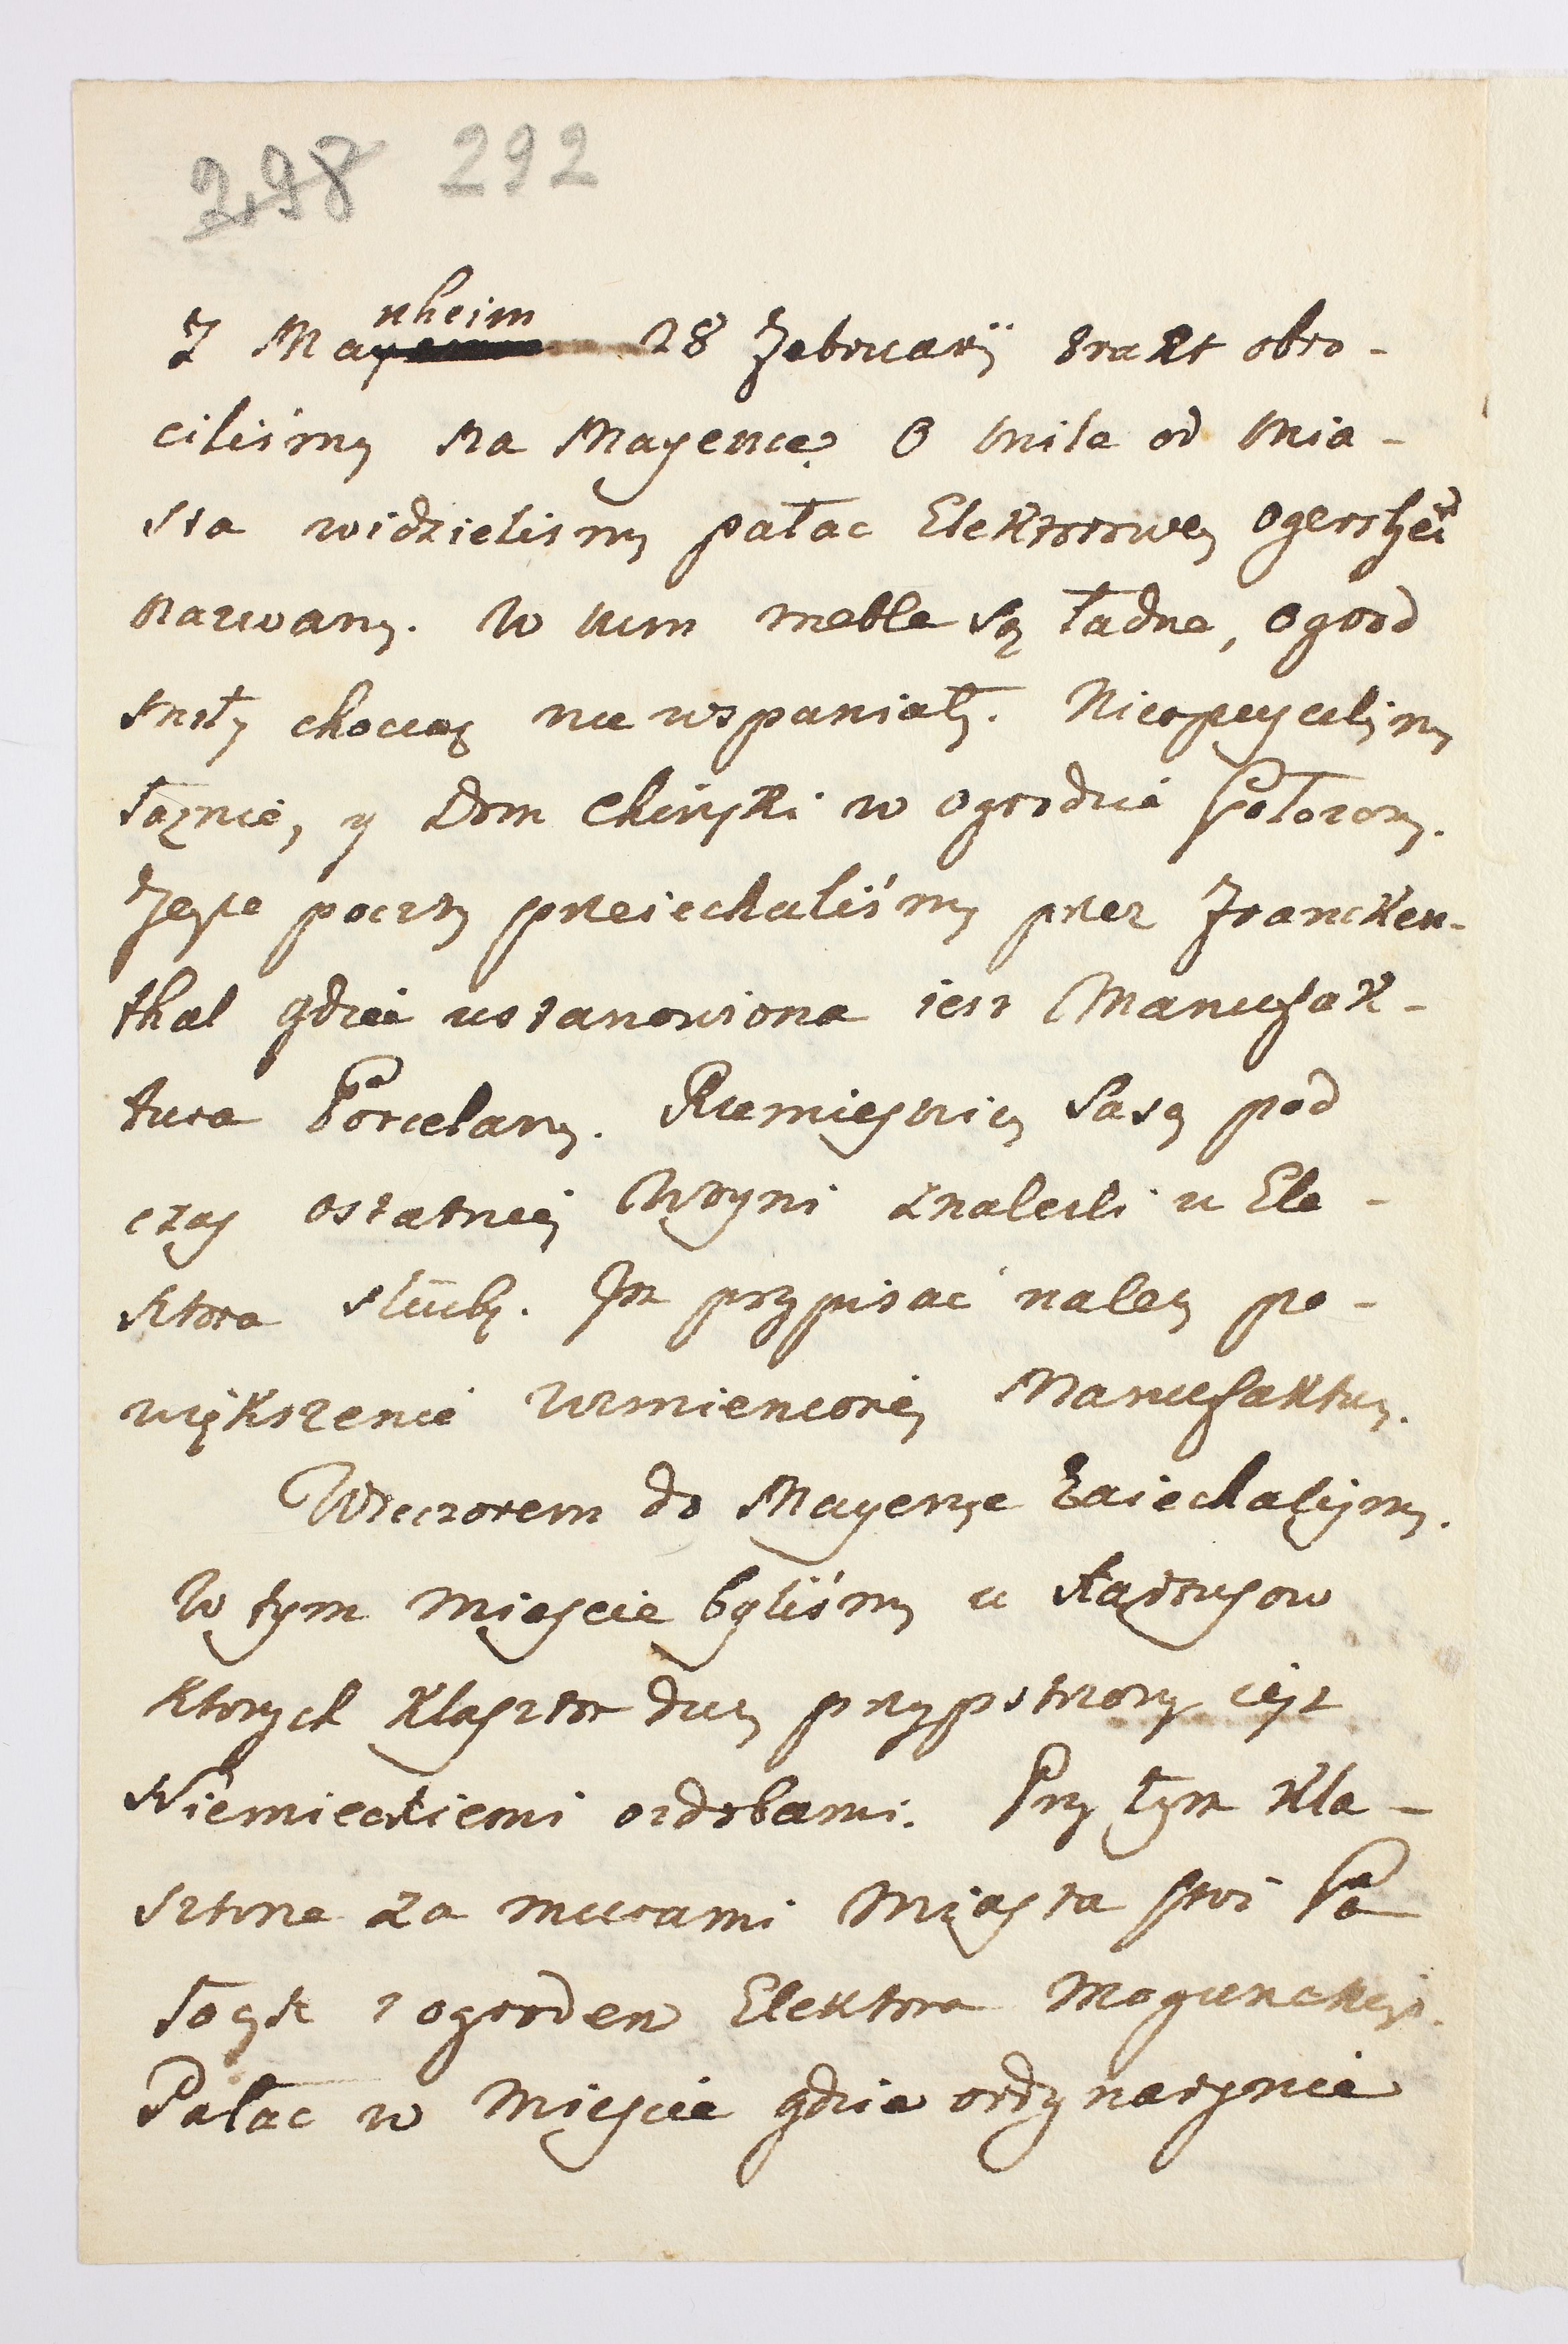 298 292
Z Manheim 28 Februarij trakt obro-
ciliśmy na Mayence. O mile od mia-
sta widzielismy pałac Elektorowey Ogersheim
nazwany. W nim meble są ładne, ogrod
miły chociaz nie wspaniały. Nieopuscilismy
łaznie, y Dom Chinski w ogrodzie połozony.
Tegze poczty przeiechaliśmy przez Francken-
thal gdzie ustanowiona iest Manufak-
tura Porcelany. Rzemiesnicy Sascy pod
czas ostatniey Woyni znalezli u Ele-
ktora słuzbę. Im przypisac nalezy po-
większenie wzmiencioney Manufaktury.
Wieczorem do Mayence Zaiechalismy.
W tym miescie byliśmy u Kartusow
ktorych Klasztor duzy przypstrzony iest
Niemieckiemi ozdobami. Przy tym Kla-
sztorze za murami Miasta stoi Pa
łacyk z ogrodem Elektora Mogunckiego.
Pałac w Miescie gdzie ordynaryinie